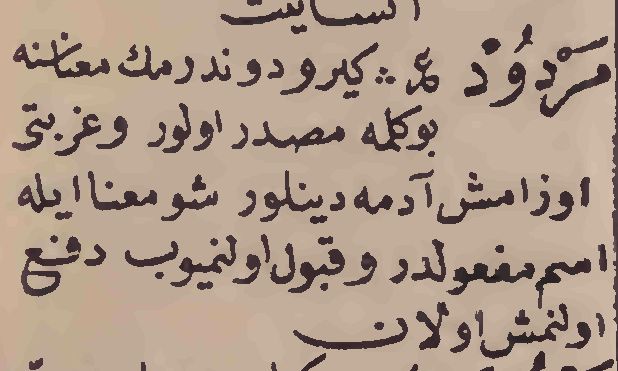 انسانيت
مَرْدُودْ ع ∴ كيرو دوندرمك معناسنه
بوكلمه مصدر اولور وغربتى
اوزامش آدمه دينلور شو معنا ايله
اسم مفعولدر وقبول اولنميوب دفع
اولنمش اولان